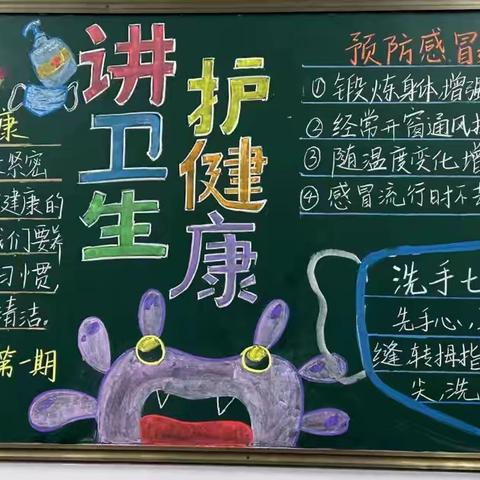 讲卫生
护健康
康
紧密
健康的
我们要养
习惯,
清洁。
第一期
预防感冒
①锻炼身体增强
②经常开窗通风
③随温度变化增
④感冒流行时不去
洗手七
先手心,
缝,转拇指
尖,洗